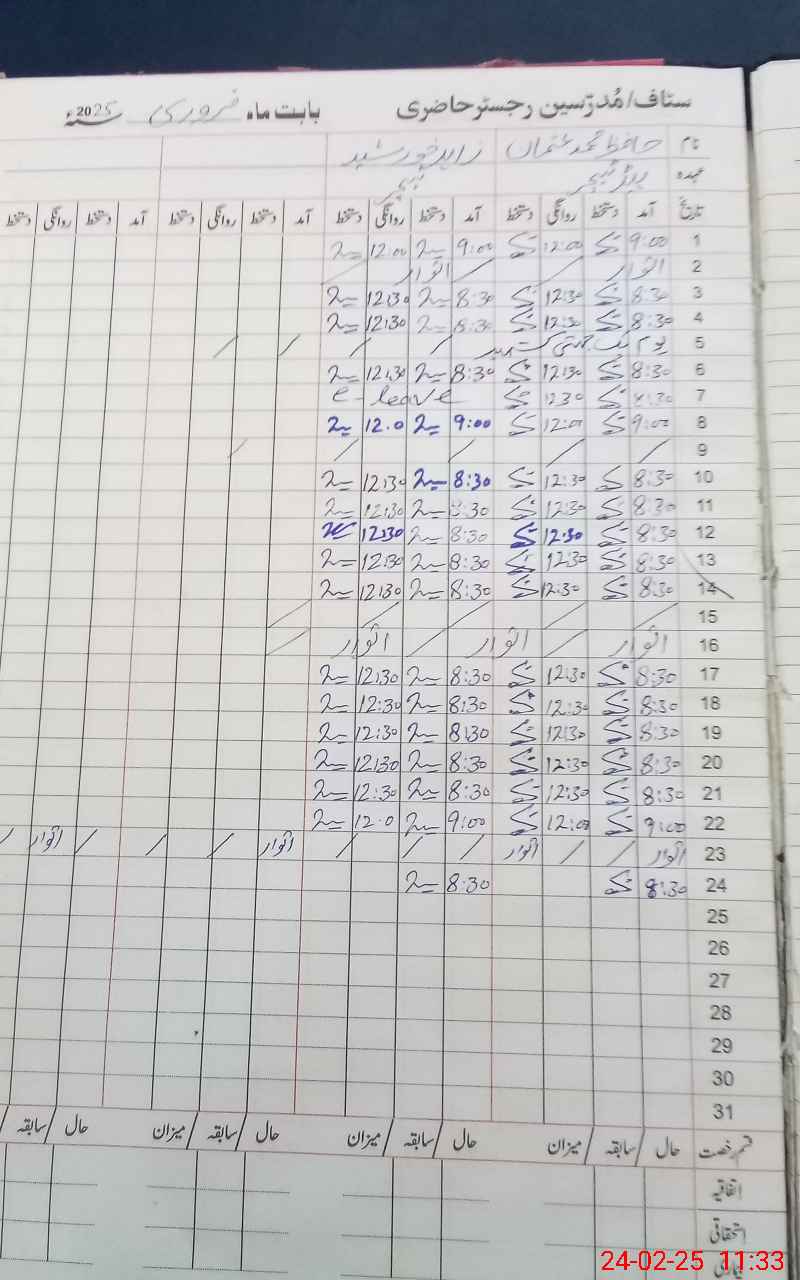 سٹاف/مُدرّسین رجسٹر حاضری بابت ماہ فروری 2025ء
نام حافظ محمد عثمان زاہد خورشید
عہدہ ہیڈ ٹیچر ٹیچر
تاریخ آمد دستخط روانگی دستخط آمد دستخط روانگی دستخط آمد دستخط روانگی دستخط آمد دستخط روانگی دستخط
1 9:00 12:00 9:00 12:00
2 اتوار اتوار
3 8:30 12:30 8:30 12:30
4 8:30 12:30 8:30 12:30
5 یوم یکجہتی کشمیر
6 8:30 12:30 8:30 12:30
7 8:30 12:30 e-leave
8 9:00 12:00 9:00 12.0
9
10 8:30 12:30 8:30 12:30
11 8:30 12:30 8:30 12:30
12 8:30 12:30 8:30 12:30
13 8:30 12:30 8:30 12:30
14 8:30 12:30 8:30 12:30
15
16 اتوار اتوار اتوار
17 8:30 12:30 8:30 12:30
18 8:30 12:30 8:30 12:30
19 8:30 12:30 8:30 12:30
20 8:30 12:30 8:30 12:30
21 8:30 12:30 8:30 12:30
22 9:00 12:00 9:00 12.0
23 اتوار اتوار اتوار اتوار
24 8:30 8:30
25
26
27
28
29
30
31
قسم رخصت حال / سابقہ / میزان حال / سابقہ / میزان حال / سابقہ / میزان حال / سابقہ /
اتفاقیہ
استحقاقی
24-02-25 11:33